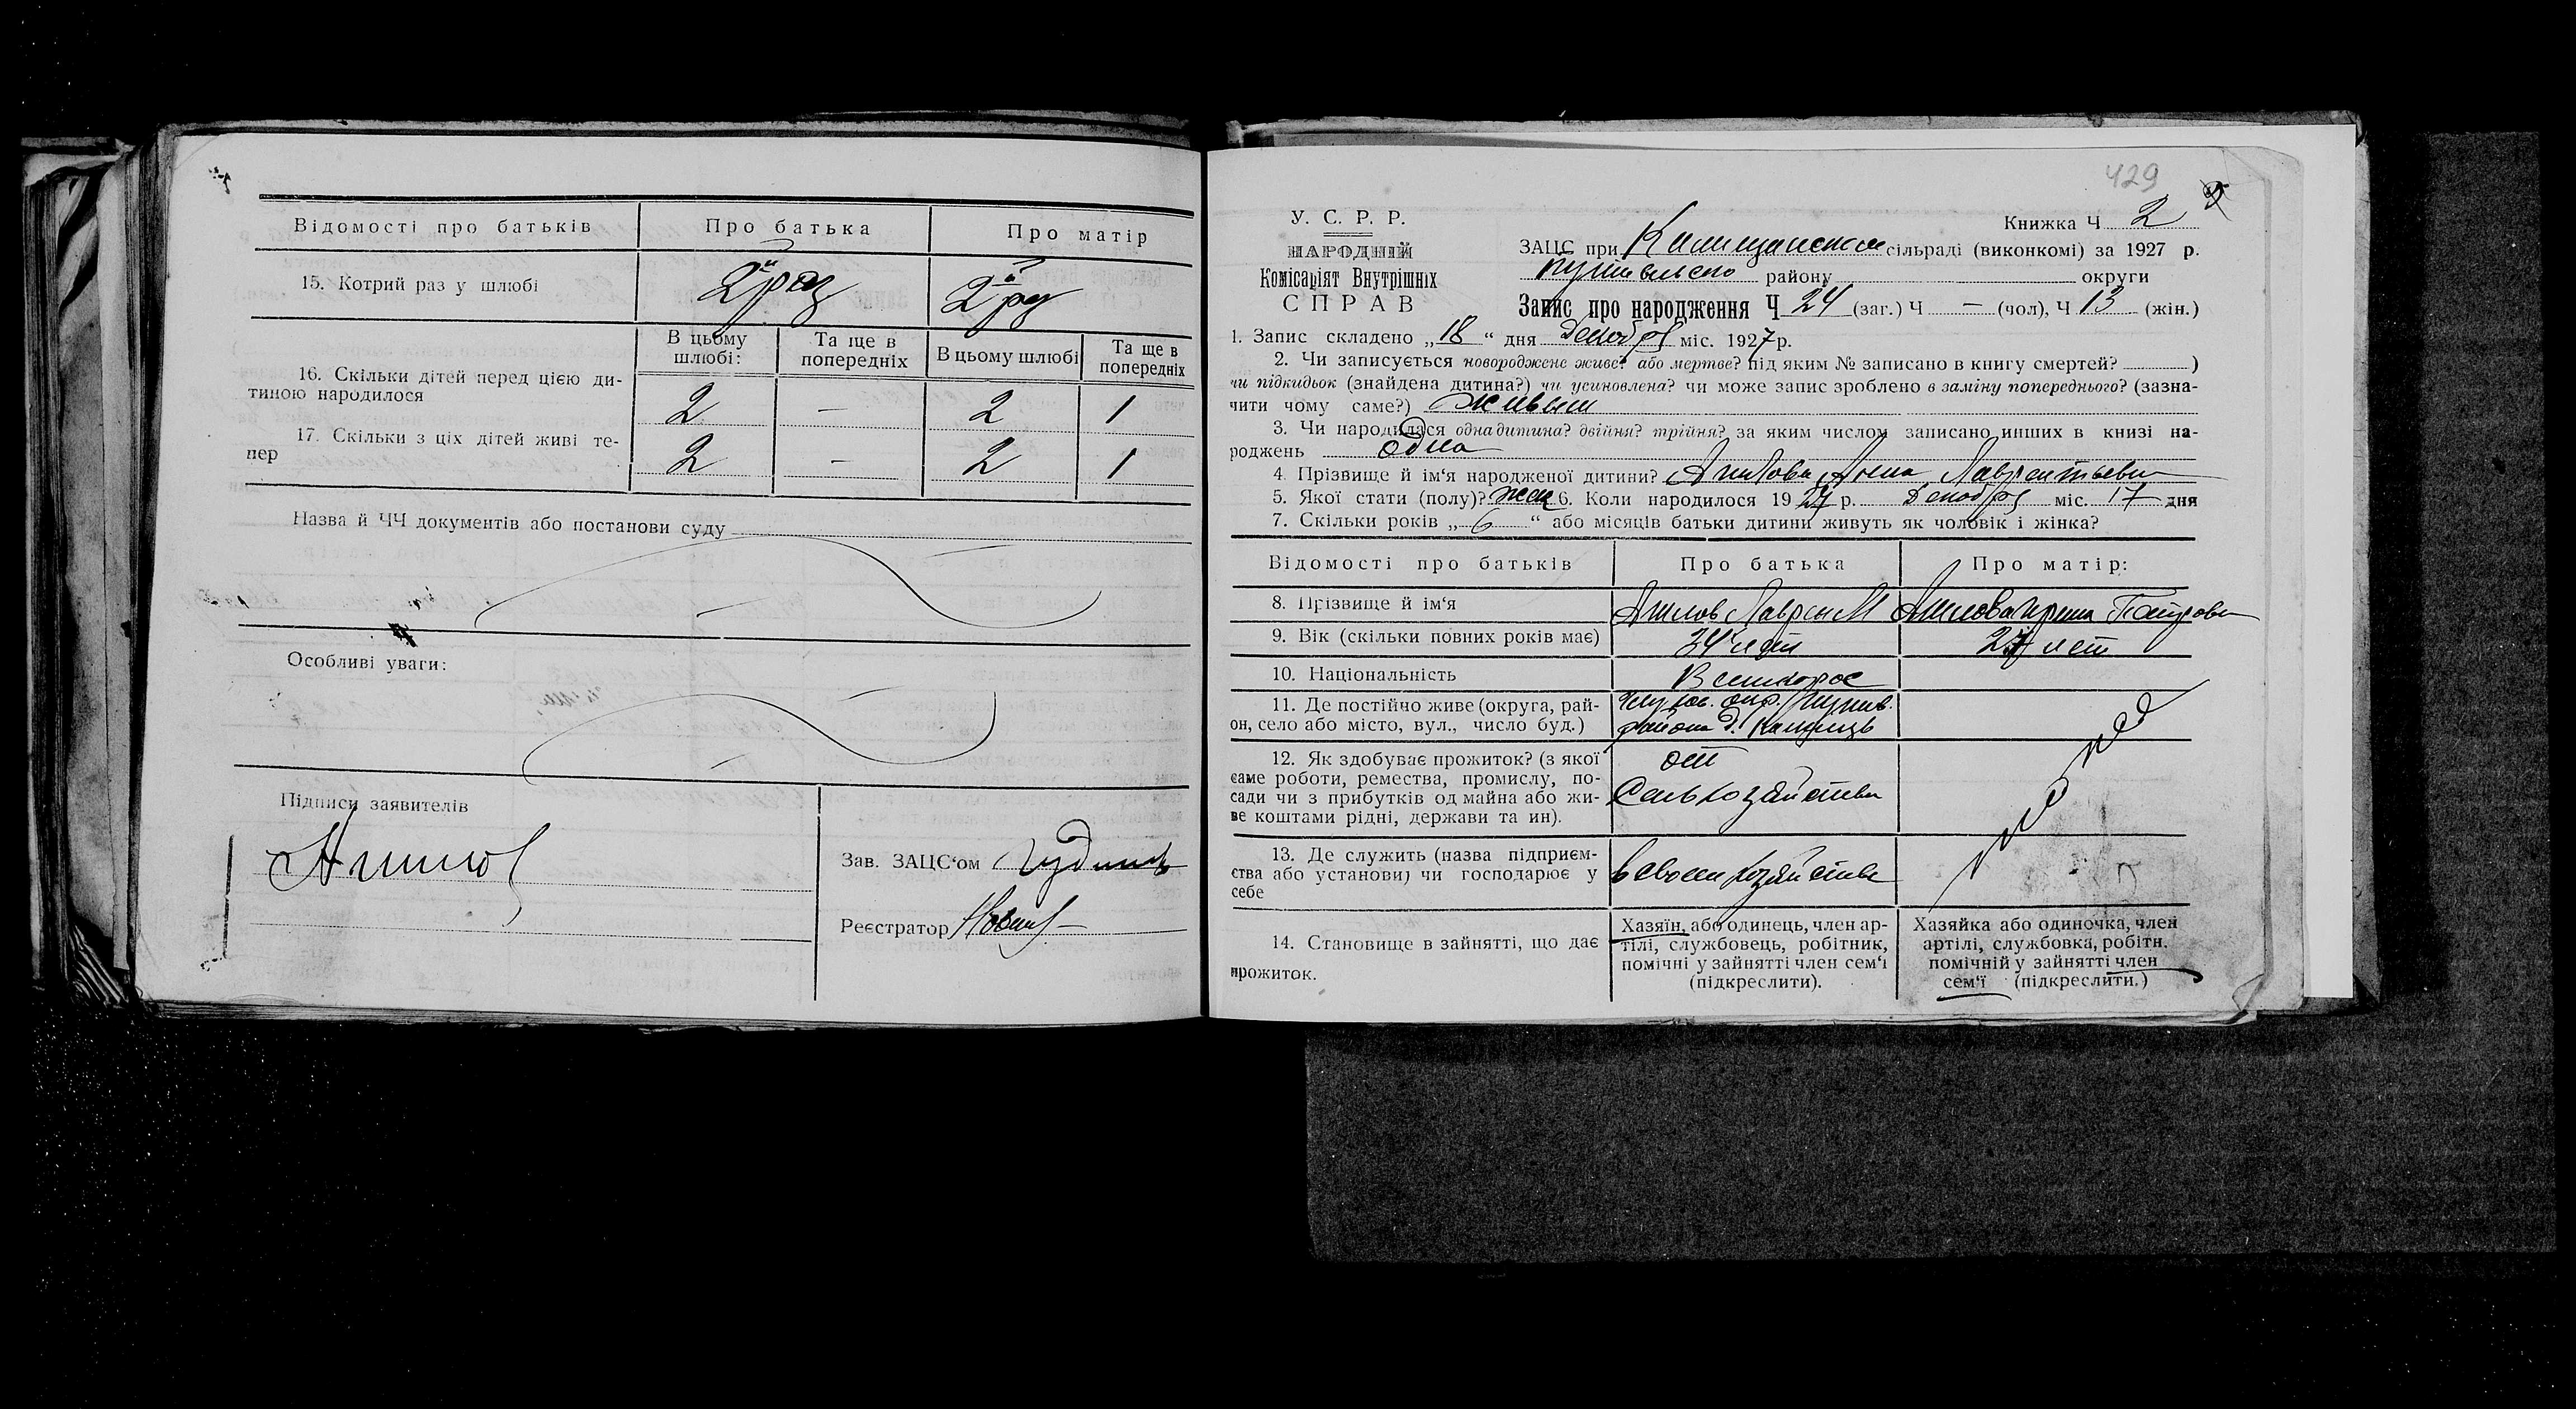 Відомості про батьків
Про батька
Про матір
15. Котрий раз у шлюбі
2й раз
2й раз
В цьому шлюбі:
Та ще в попередніх
В цьому шлюбі
Та ще в попередніх
16. Скільки дітей перед цією ди-
тиною народилося
2
—
2
1
17. Скільки з ціх дітей живі те-
пер
2
—
2
1
Назва й ЧЧ документів або постанови суду
Особливі уваги:
Підписи заявителів
Зав. ЗАЦС‘ом
Реєстратор
429
Книжка Ч 2
У. С. Р. Р.
НАРОДНІЙ
Комісаріят Внутрішніх
СПРАВ
ЗАЦС при сільраді (виконкомі) за 1927 р.
району округи
Запис про народження Ч 24 (заг.) Ч — (чол), Ч 13 (жін.)
1. Запис складено „18“ дня Декабря міс. 1927 р.
2. Чи записується новороджене живе? або мертве? під яким № записано в книгу смертей? )
чи підкидьок (знайдена дитина?) чи усиновлена? чи може запис зроблено в заміну попереднього? (зазна-
чити чому саме?) живым
3. Чи народилася одна дитина? двійня? трійня? за яким числом записано инших в книзі на-
роджень одна
4. Прізвище й ім‘я народженої дитини? Анна Лаврентьевн
5. Якої стати (полу)? жен 6. Коли народилося 1927 р. Декабря міс. 17 дня
7. Скільки років „6“ або місяців батьки дитини живуть як чоловік і жінка?
Відомості про батьків
Про батька
Про матір:
8. Прізвище й ім‘я
9. Вік (скільки повних років має)
34 лет
27 лет
10. Національність
Великорос
11. Де постійно живе (округа, рай-
он, село або місто, вул., число буд.)
района д.
12. Як здобуває прожиток? (з якої
саме роботи, ремества, промислу, по-
сади чи з прибутків од майна або жи-
ве коштами рідні, держави та ин).
от
Сельхозяйства
13. Де служить (назва підприєм-
ства або установи) чи господарює у
себе
в своем хозяйстве
14. Становище в зайнятті, що дає
прожиток.
Хазяїн, або одинець, член ар-
тілі, службовець, робітник,
помічні у зайнятті член сем‘ї
(підкреслити).
Хазяйка або одиночка, член
артілі, службовка, робітн.
помічній у зайнятті член
сем‘ї (підкреслити.)